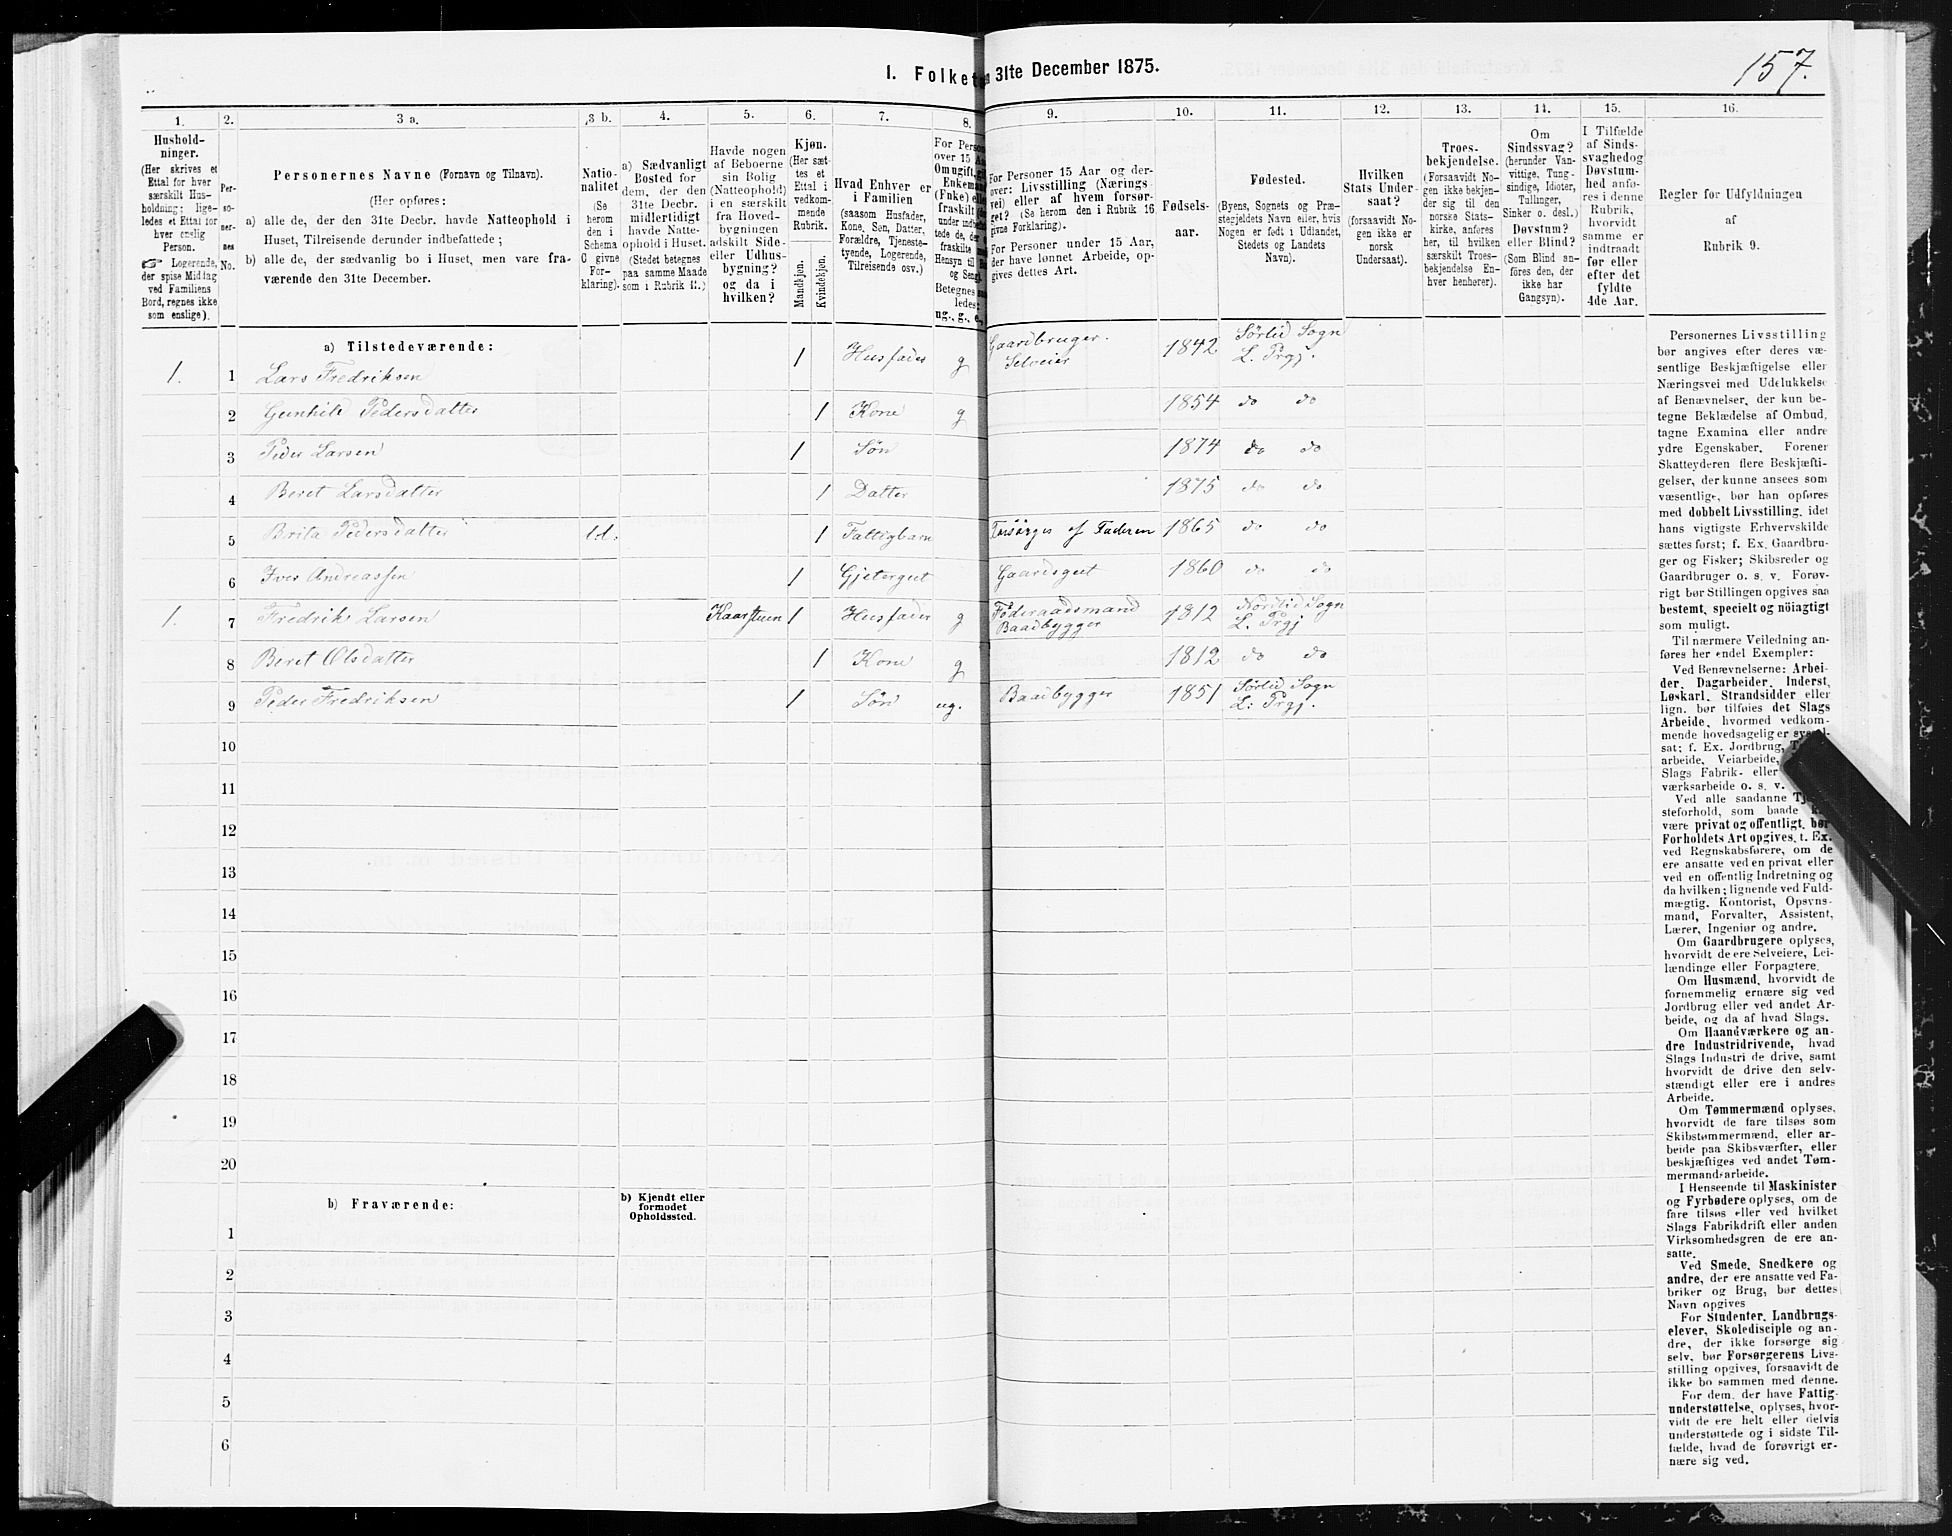 157.
I. Folket
n 31te December 1875.
1.
2.
3 a.
3 b.
4.
5.
6.
7.
8.
9.
10.
11.
12.
13.
14.
15.
16.
Hushold-
ninger.
(Her skrives et
Ettal for hver
særskilt Hus-
holdning; lige-
ledes et Ettal for
hver enslig
Person.
☞ Logerende,
der spise Middag
ved Familiens
Bord, regnes ikke
som enslige).
Per-
so-
ner-
nes
No.
Personernes Navne (Fornavn og Tilnavn).
(Her opføres:
a) alle de, der den 31te Decbr. havde Natteophold i
Huset, Tilreisende derunder indbefattede;
b) alle de, der sædvanlig bo i Huset, men vare fra-
værende den 31te December.
Natio-
nalitet
(Se
herom
den i
Schema
C givne
For-
klaring).
a) Sædvanligt
Bosted for
dem, der den
31te Decbr.
midlertidigt
havde Natte-
ophold i Huset.
(Stedet betegnes
paa samme Maade
som i Rubrik 11.)
Havde nogen
af Beboerne
sin Bolig
(Natteophold)
i en særskilt
fra Hoved-
bygningen
adskilt Side-
eller Udhus-
bygning?
og da i
hvilken?
Kjøn.
(Her sæt-
tes et
Ettal i
vedkom-
mende
Rubrik.
Mandkjøn.
Kvindekjøn.
Hvad Enhver er
i Familien
(saasom Husfader,
Kone, Søn, Datter,
Forældre, Tjeneste-
tyende, Logerende,
Tilreisende osv.)
For Person
over 15 Aa
Om ugift, g
Enkeman
(Enke) ell
fraskilt
under indbe
tede de, der
fraskilte
Hensyn til B
og Seng)
Betegnes s
ledes:
ug., g., e.,
For Personer 15 Aar og der-
over: Livsstilling (Nærings-
vei) eller af hvem forsør-
get? (Se herom den i Rubrik 16
givne Forklaring).
For Personer under 15 Aar,
der have lønnet Arbeide, op-
gives dettes Art.
Fødsels-
aar.
Fødested.
(Byens, Sognets og Præ-
stegjeldets Navn eller, hvis
Nogen er født i Udlandet,
Stedets og Landets
Navn).
Hvilken
Stats Under-
saat?
(forsaavidt No-
gen ikke er
norsk
Undersaat).
Troes-
bekjendelse.
(Forsaavidt No-
gen ikke bekjen-
der sig til den
norske Stats-
kirke, anføres
her, til hvilken
særskilt Troes-
bekjendelse En-
hver henhører).
Om
Sindssvag?
(herunder Van-
vittige, Tung-
sindige, Idioter,
Tullinger,
Sinker o. desl.)
Døvstum?
eller Blind?
(Som Blind an-
føres den, der
ikke har
Gangsyn).
I Tilfælde
af Sinds-
svaghedog
Døvstum-
hed anfø-
res i denne
Rubrik,
hvorvidt
samme er
indtraadt
før eller
efter det
fyldte
4de Aar.
Regler for Udfyldningen
af
Rubrik 9.
a) Tilstedeværende:
1. 1 Lars Fredriksen 1 Husfader g Gaardbruger. Selveier 1842 Sørlid Sogn L. Prgj.
2 Gunhild Pedersdatter 1 Kone g 1854 do do
3 Peder Larsen 1 Søn 1874 do do
4 Beret Larsdatter 1 Datter 1875 do do
5 Brita Pedersdatter l.d. 1 Fattigbarn Forsørges af Faderen 1865 do do
6 Iver Andreassen 1 Gjetergut Gaardsgut 1860 do do
1. 7 Fredrik Larsen Kaarstuen 1 Husfader g Føderaadsmand Baadbygger 1812 Nordlid Sogn L. Prgj
8 Beret Olsdatter 1 Kone g 1812 do do
9 Peder Fredriksen 1 Søn ug. Baadbygger 1851 Sørlid Sogn L: Prgj.
10
11
12
13
14
15
16
17
18
19
20
b) Fraværende:
b) Kjendt eller
formodet
Opholdssted.
1
2
3
4
5
6
Personernes Livsstilling
bør angives efter deres væ-
sentlige Beskjæftigelse eller
Næringsvei med Udelukkelse
af Benævnelser, der kun be-
tegne Beklædelse af Ombud,
tagne Examina eller andre
ydre Egenskaber. Forener
Skatteyderen flere Beskjæfti-
gelser, der kunne ansees som
væsentlige, bør han opføres
med dobbelt Livsstilling, idet
hans vigtigste Erhvervskilde
sættes først; f. Ex. Gaardbru-
ger og Fisker; Skibsreder og
Gaardbruger o. s. v. Forøv-
rigt bør Stillingen opgives saa
bestemt, specielt og nöiagtigt
som muligt.
Til nærmere Veiledning an-
føres her endel Exempler:
Ved Benævnelserne: Arbei-
der, Dagarbeider, Inderst,
Løskarl, Strandsidder eller
lign. bør tilføies det Slags
Arbeide, hvormed vedkom-
mende hovedsagelig er syssel-
sat; f. Ex. Jordbrug, T
arbeide, Veiarbeide,
Slags Fabrik- eller
værksarbeide o. s. v.
Ved alle saadanne Tje
steforhold, som baade k
være privat og offentligt, bør
Forholdets Art opgives, t. Ex.
ved Regnskabsførere, om de
ere ansatte ved en privat eller
ved en offentlig Indretning og
da hvilken; lignende ved Fuld-
mægtig, Kontorist, Opsyns-
mand, Forvalter, Assistent,
Lærer, Ingeniør og andre.
Om Gaardbrugere oplyses,
hvorvidt de ere Selveiere, Lei-
lændinge eller Forpagtere.
Om Husmænd, hvorvidt de
fornemmelig ernære sig ved
Jordbrug eller ved andet Ar-
beide, og da af hvad Slags.
Om Haandværkere og an-
dre Industridrivende, hvad
Slags Industri de drive, samt
hvorvidt de drive den selv-
stændigt eller ere i andres
Arbeide.
Om Tømmermænd oplyses,
hvorvidt de fare tilsøs som
Skibstømmermænd, eller ar-
beide paa Skibsværfter, eller
beskjæftiges ved andet Tøm-
mermandsarbeide.
I Henseende til Maskinister
og Fyrbødere oplyses, om de
fare tilsøs eller ved hvilket
Slags Fabrikdrift eller anden
Virksomhedsgren de ere an-
satte.
Ved Smede, Snedkere og
andre, der ere ansatte ved Fa-
briker og Brug, bør dettes
Navn opgives
For Studenter, Landbrugs-
elever, Skoledisciple og an-
dre, der ikke forsørge sig
selv, bør Forsørgerens Livs-
stilling opgives, forsaavidt de
ikke bo sammen med denne.
For dem, der have Fattig-
understøttelse, oplyses, hvor-
vidt de ere helt eller delvis
understøttede og i sidste Til-
fælde, hvad de forøvrigt er-
nære sig ved.